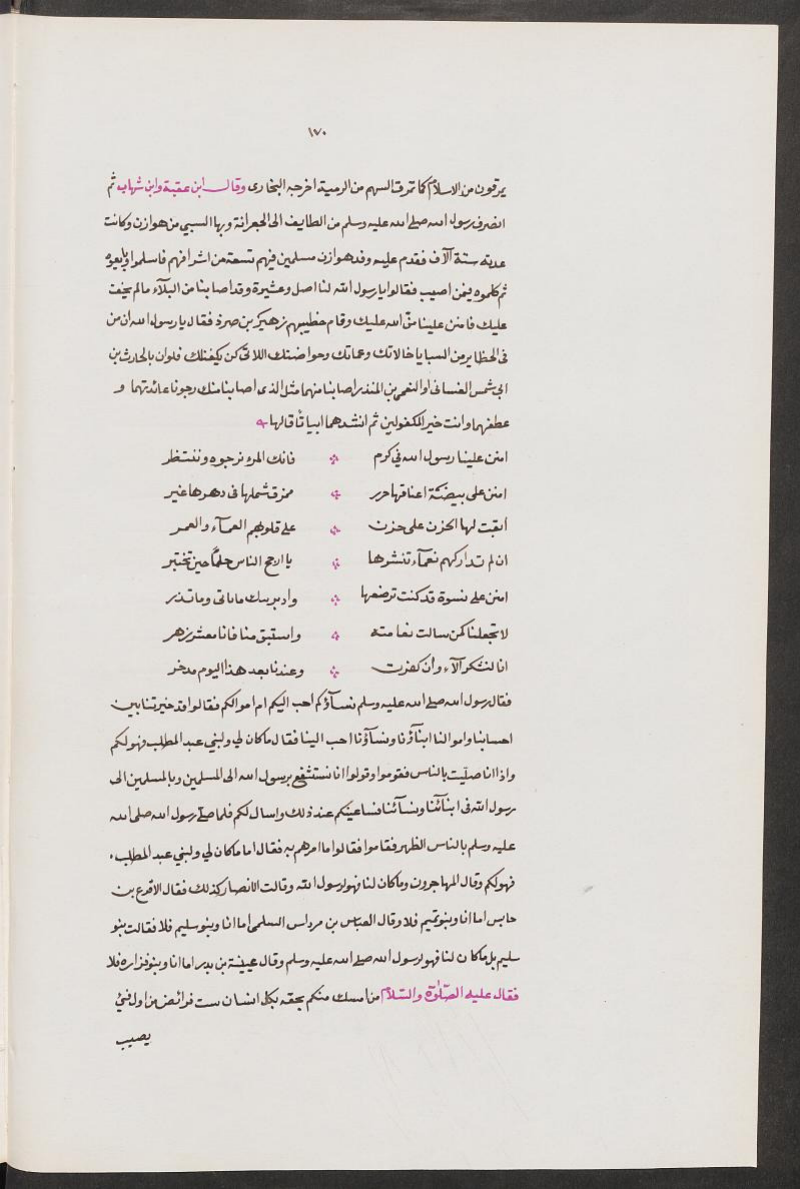 ١٧٠
يمرقون من الاسلام كما تمرق السهم من الرمية اخرجه البخارى وقال ابن عقبة وابن شهاب ثم
انصرف رسول الله صلى الله عليه وسلم من الطايف الى الجعرانة وبها السبي من هوازن وكانت
عدته ستة آلاف فقدم عليه وفد هوازن مسلمين فيهم تسعة من اشرافهم فاسلموا وبايعوه
ثم كلموه فيمن اصيب فقالوا يا رسول الله لنا اصل وعشيرة وقد اصابنا من البلآء ما لم يخف
عليك فامنن علينا منّ الله عليك وقام خطيبهم زهير بن صرد فقال يا رسول الله ان من
فى الحظاير من السبايا خالاتك وعماتك وحواضنك اللاتى كن يكفلنك فلوان بالحارث بن
ابى شمس الغسانى او النعمن بن المنذر اصابنا منهما مثل الذى اصابنا منك رجونا عائدتهما و
عطفهما وانت خير المكفولين ثم انشدهما ابياتًا قالها
امنن علينا رسول الله في كرم فانك المرء نرجوه وننتظر
امنن على بيضة اعناقها حرر ممزق شملها فى دهرها غير
ابقت لها الحزن على حزن على قلوبهم الغمآء والغمر
ان لم تداركهم نعمآء تنشرها يا ارجح الناس حلمًا حين تختبر
امنن على نسوة قد كنت ترضعها واذ يريبك ما تاتى وما تذر
لا تجعلنا كمن سالت نعامته واستبق منا فانا معشر زهر
انا لنشكر آلاء وان كفرت وعندنا بعد هذا اليوم مدخر
فقال رسول الله صلى الله عليه وسلم نسآؤكم احب اليكم ام اموالكم فقالوا قد خيرتنا بين
احسابنا واموالنا ابنآؤنا ونسآؤنا احب الينا فقال ما كان لي ولبني عبد المطلب فهو لكم
واذا انا صليت بالناس فقوموا وقولوا انا نستشفع برسول الله الى المسلمين وبالمسلمين الى
رسول الله فى ابنآئنا ونسآئنا فساعينكم عند ذلك واسال لكم فلما صلى رسول الله صلى الله
عليه وسلم بالناس الظهر فقاموا فقالوا ما امرهم به فقال اما ما كان لي ولبني عبد المطلب
فهو لكم وقال المهاجرون وما كان لنا فهو لرسول الله وقالت الانصار كذلك فقال الاقرع بن
حابس اما انا وبنو تميم فلا وقال العباس بن مرداس السلمى اما انا وبنو سليم فلا فقالت بنو
سليم بل ما كان لنا فهو لرسول الله صلى الله عليه وسلم وقال عيينة بن بدر اما انا وبنو فزاره فلا
فقال عليه الصّلوٰة والسّلام من امسك منكم بحقه بكل انسان ست فرائض من اول فئ
يصيب